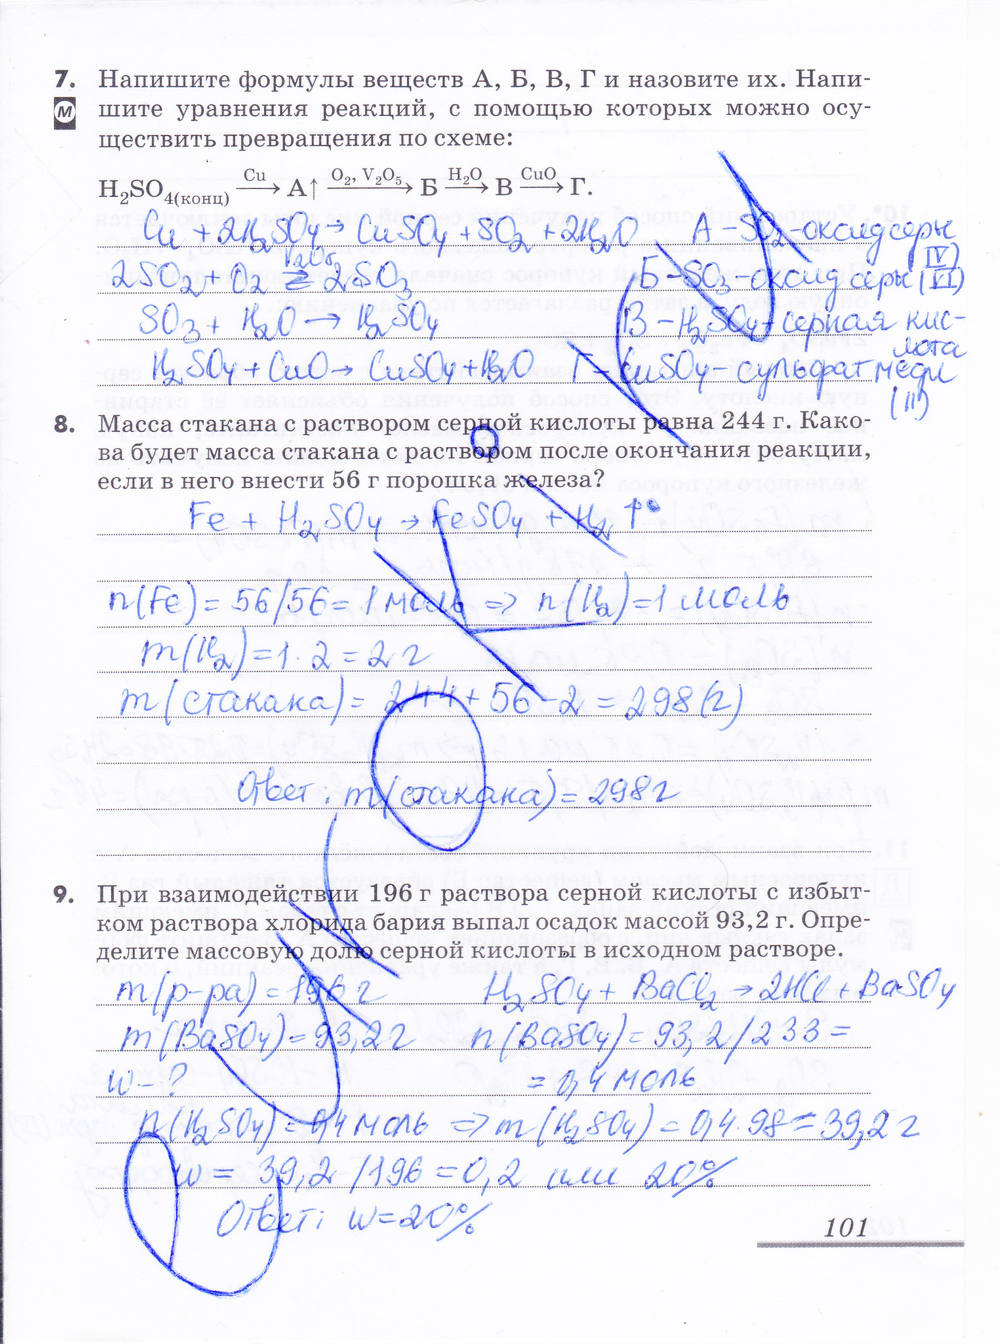 7. Напишите формулы веществ А, Б, В, Г и назовите их. Напи-
М шите уравнения реакций, с помощью которых можно осу-
ществить превращения по схеме:
H₂SO₄(конц) —Cu→ А↑ —O₂, V₂O₅→ Б —H₂O→ В —CuO→ Г.
Cu + 2H₂SO₄ → CuSO₄ + SO₂ + 2H₂O А – SO₂ – оксид серы (IV)
2SO₂ + O₂ ⇄ V₂O₅ 2SO₃ Б – SO₃ – оксид серы (VI)
SO₃ + H₂O → H₂SO₄ В – H₂SO₄ – серная кис-
лота
H₂SO₄ + CuO → CuSO₄ + H₂O Г – CuSO₄ – сульфат меди
(II)
8. Масса стакана с раствором серной кислоты равна 244 г. Како-
ва будет масса стакана с раствором после окончания реакции,
если в него внести 56 г порошка железа?
Fe + H₂SO₄ → FeSO₄ + H₂ ↑
n(Fe) = 56/56 = 1 моль ⇒ n(H₂) = 1 моль
m(H₂) = 1 · 2 = 2 г
m(стакана) = 244 + 56 - 2 = 298 (г)
Ответ: m(стакана) = 298 г
9. При взаимодействии 196 г раствора серной кислоты с избыт-
ком раствора хлорида бария выпал осадок массой 93,2 г. Опре-
делите массовую долю серной кислоты в исходном растворе.
m(р-ра) = 196 г H₂SO₄ + BaCl₂ → 2HCl + BaSO₄
m(BaSO₄) = 93,2 г n(BaSO₄) = 93,2/233 =
w – ? = 0,4 моль
n(H₂SO₄) = 0,4 моль ⇒ m(H₂SO₄) = 0,4 · 98 = 39,2 г
w = 39,2/196 = 0,2 или 20%
Ответ: w = 20%
101